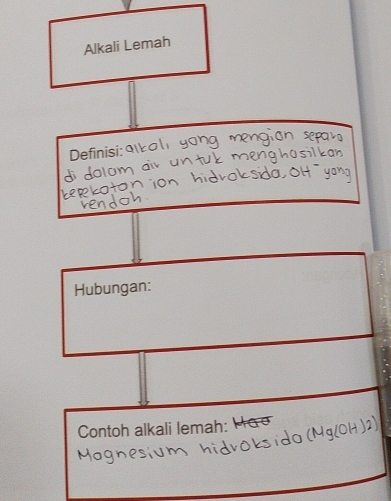 Alkali Lemah
Definisi: alkali yang mengion separa
di dalam air untuk menghasilkan
kepekatan ion hidroksida, OH⁻ yang
rendah.
Hubungan:
Contoh alkali lemah:
Magnesium hidroksida (Mg(OH)2)